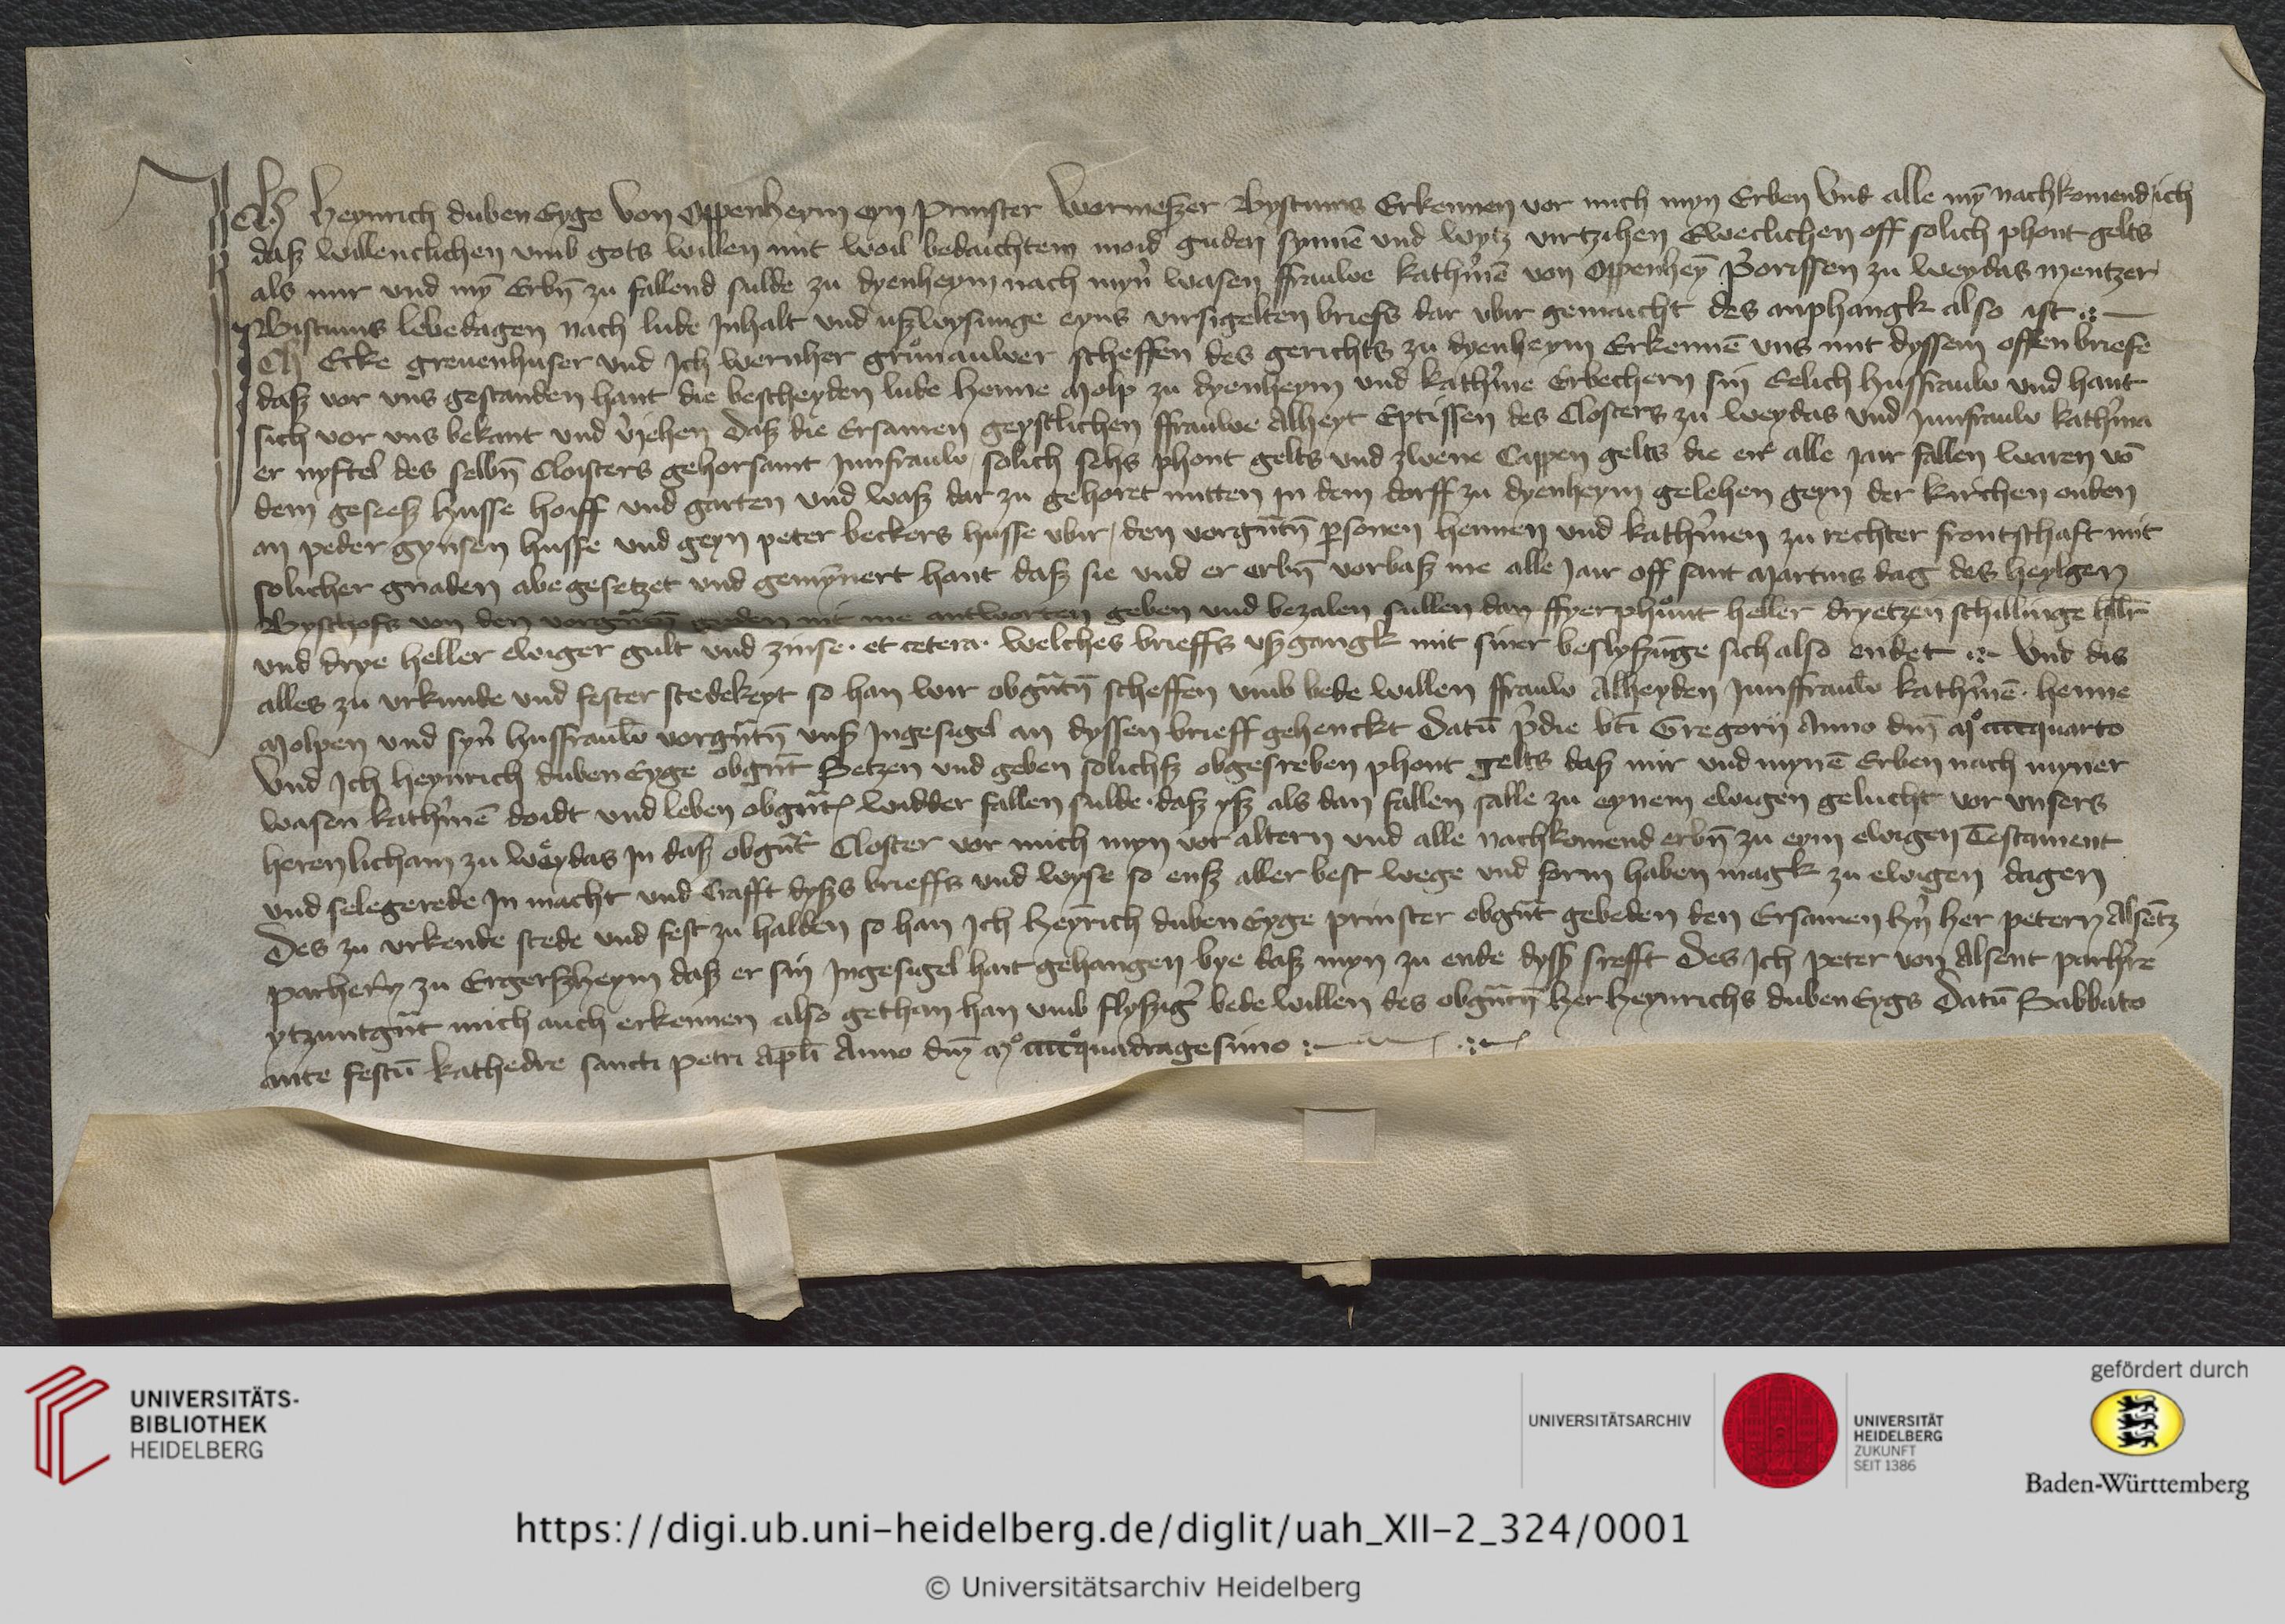 Ich Heynrich duben Eyge von Oppenheym eyn prinster Wormeßer Bystums Erkennen vor mich myn Erben Und alle mȳ nachkomend ich
daß willenclichen umb gots willen mit woil bedaichtem moid guden synnē und wytz virtzihen Eweclichen off solich phont gelts
als mir und mȳ Erbn̄ zu fallend sulde zu dyenheym nach myn̄ wasen ffrauwe kathr̄inē von Oppenheȳ p̄orissen zu weydas mentzer
Bistums lebedagen nach lude Inhalt und ußwysunge eyns virsigelten briefs dar vbir gemaicht des anphangk also ist
Ich Ecke greuenhuser und Ich wernher grůnauwer scheffen des gerichts zu dyenheym Erkennē uns mit dyssem offen briefe
daß vor uns gestanden hant die bescheyden lude Henne Molp zu dyenheym und kathr̄ine Erbechern sin Eelich Husfrauw und hant
sich vor uns bekant und v̄iehen daß die Ersamen geystlichen ffrauwe Alheyt Eptissen des Closters zu weydas und Junfrauw kathr̄ina
er nyftel des selbn̄ Cloisters gehorsamt Junfrauw solich sehs phont gelts und zwene Cappen gelts die en̄ alle jair fallen waren vō
dem geseeß Husse hoiff und garten und waß dar zu gehoret mitten in dem dorff zu dyenheym gelehen geyn der kirchen onden
an peder gynsen husse und geyn peter beckers husse vbir, den vorgn̄tn̄ psonen hennen und kathr̄inen zu rechter frontschaft mit
solicher gnaden abegesetzet und gemȳnert hant daß sie und er erbn̄ vorbaß me alle Jair off sant martins dag des heylgen
Byschofs von den vorgn̄tn̄ guden nit me antworten geben und bezalen sullen dan ffyer phůnt heller dryetzen schillinge hllr̄
und drye heller ewiger gult und zinse. et cetera. welches brieffs ußgangk mit siner beslyßūge sich also endet Und dis
alles zu urkunde und fester stedekeyt so han wir obgn̄tn̄ scheffen umb bede willen ffrauw Alheyden Junffrauw kathr̄inē. henne
Molpen und syn̄ husfrauw vorgn̄tn̄ unß Ingesigel an dyssen brieff gehenckt Datū p̄die bt̄i Gregorij Anno dm̄ Mº ccccquarto
Und Ich Heynrich duben Eyge obgnt̄ Setzen und geben solichß obgesreben phont gelts daß mir und mynē Erben nach myner
wasen kathr̄inē doidt und leben obgn̄t widder fallen sulde. daß yß als dan fallen salle zu eynem ewigen gelucht vor unsers
heren licham zu weydas In daß obgn̄t Closter vor mich myn vor altern und alle nachkomend erbn̄ zu eym ewigen Testament
und selegerede In macht und Crafft dyßs brieffs und wyse so enß aller best wege und form haben magk zu ewigen dagen
Des zu urkende stede und fest zu halden so han Ich Heyr̄ich duben Eyge prinster obgn̄t gebeden den Ersamen hn̄ her petern Alsētz
parhern̄ zu Ergerßheym daß er sin Ingesigel hait gehangen bye daß myn zu ende dyss srefft Des Ich peter von Alsent parhr̄re
ytzuntgn̄t mich auch erkennen also gethan han umb flyßiḡ bede willen des obgn̄tn̄ her Heynrichs duben Eygs Datū Sabbato
ante festū kathedre sancti petri ap̄li Anno dm̄ Mº ccccºquadragesimo
UNIVERSITÄTS-
BIBLIOTHEK
HEIDELBERG
UNIVERSITÄTSARCHIV
UNIVERSITÄT
HEIDELBERG
ZUKUNFT
SEIT 1386
gefördert durch
Baden-Württemberg
https://digi.ub.uni-heidelberg.de/diglit/uah_XII-2_324/0001
© Universitätsarchiv Heidelberg